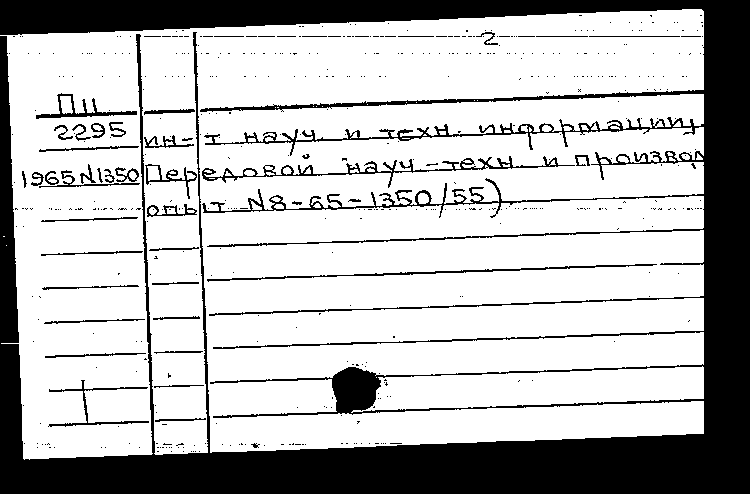 2
П11
2295 ин-т науч. и техн. информации.
1965 N1350 Передовой науч.-техн. и производ
опыт N8-65-1350/55).